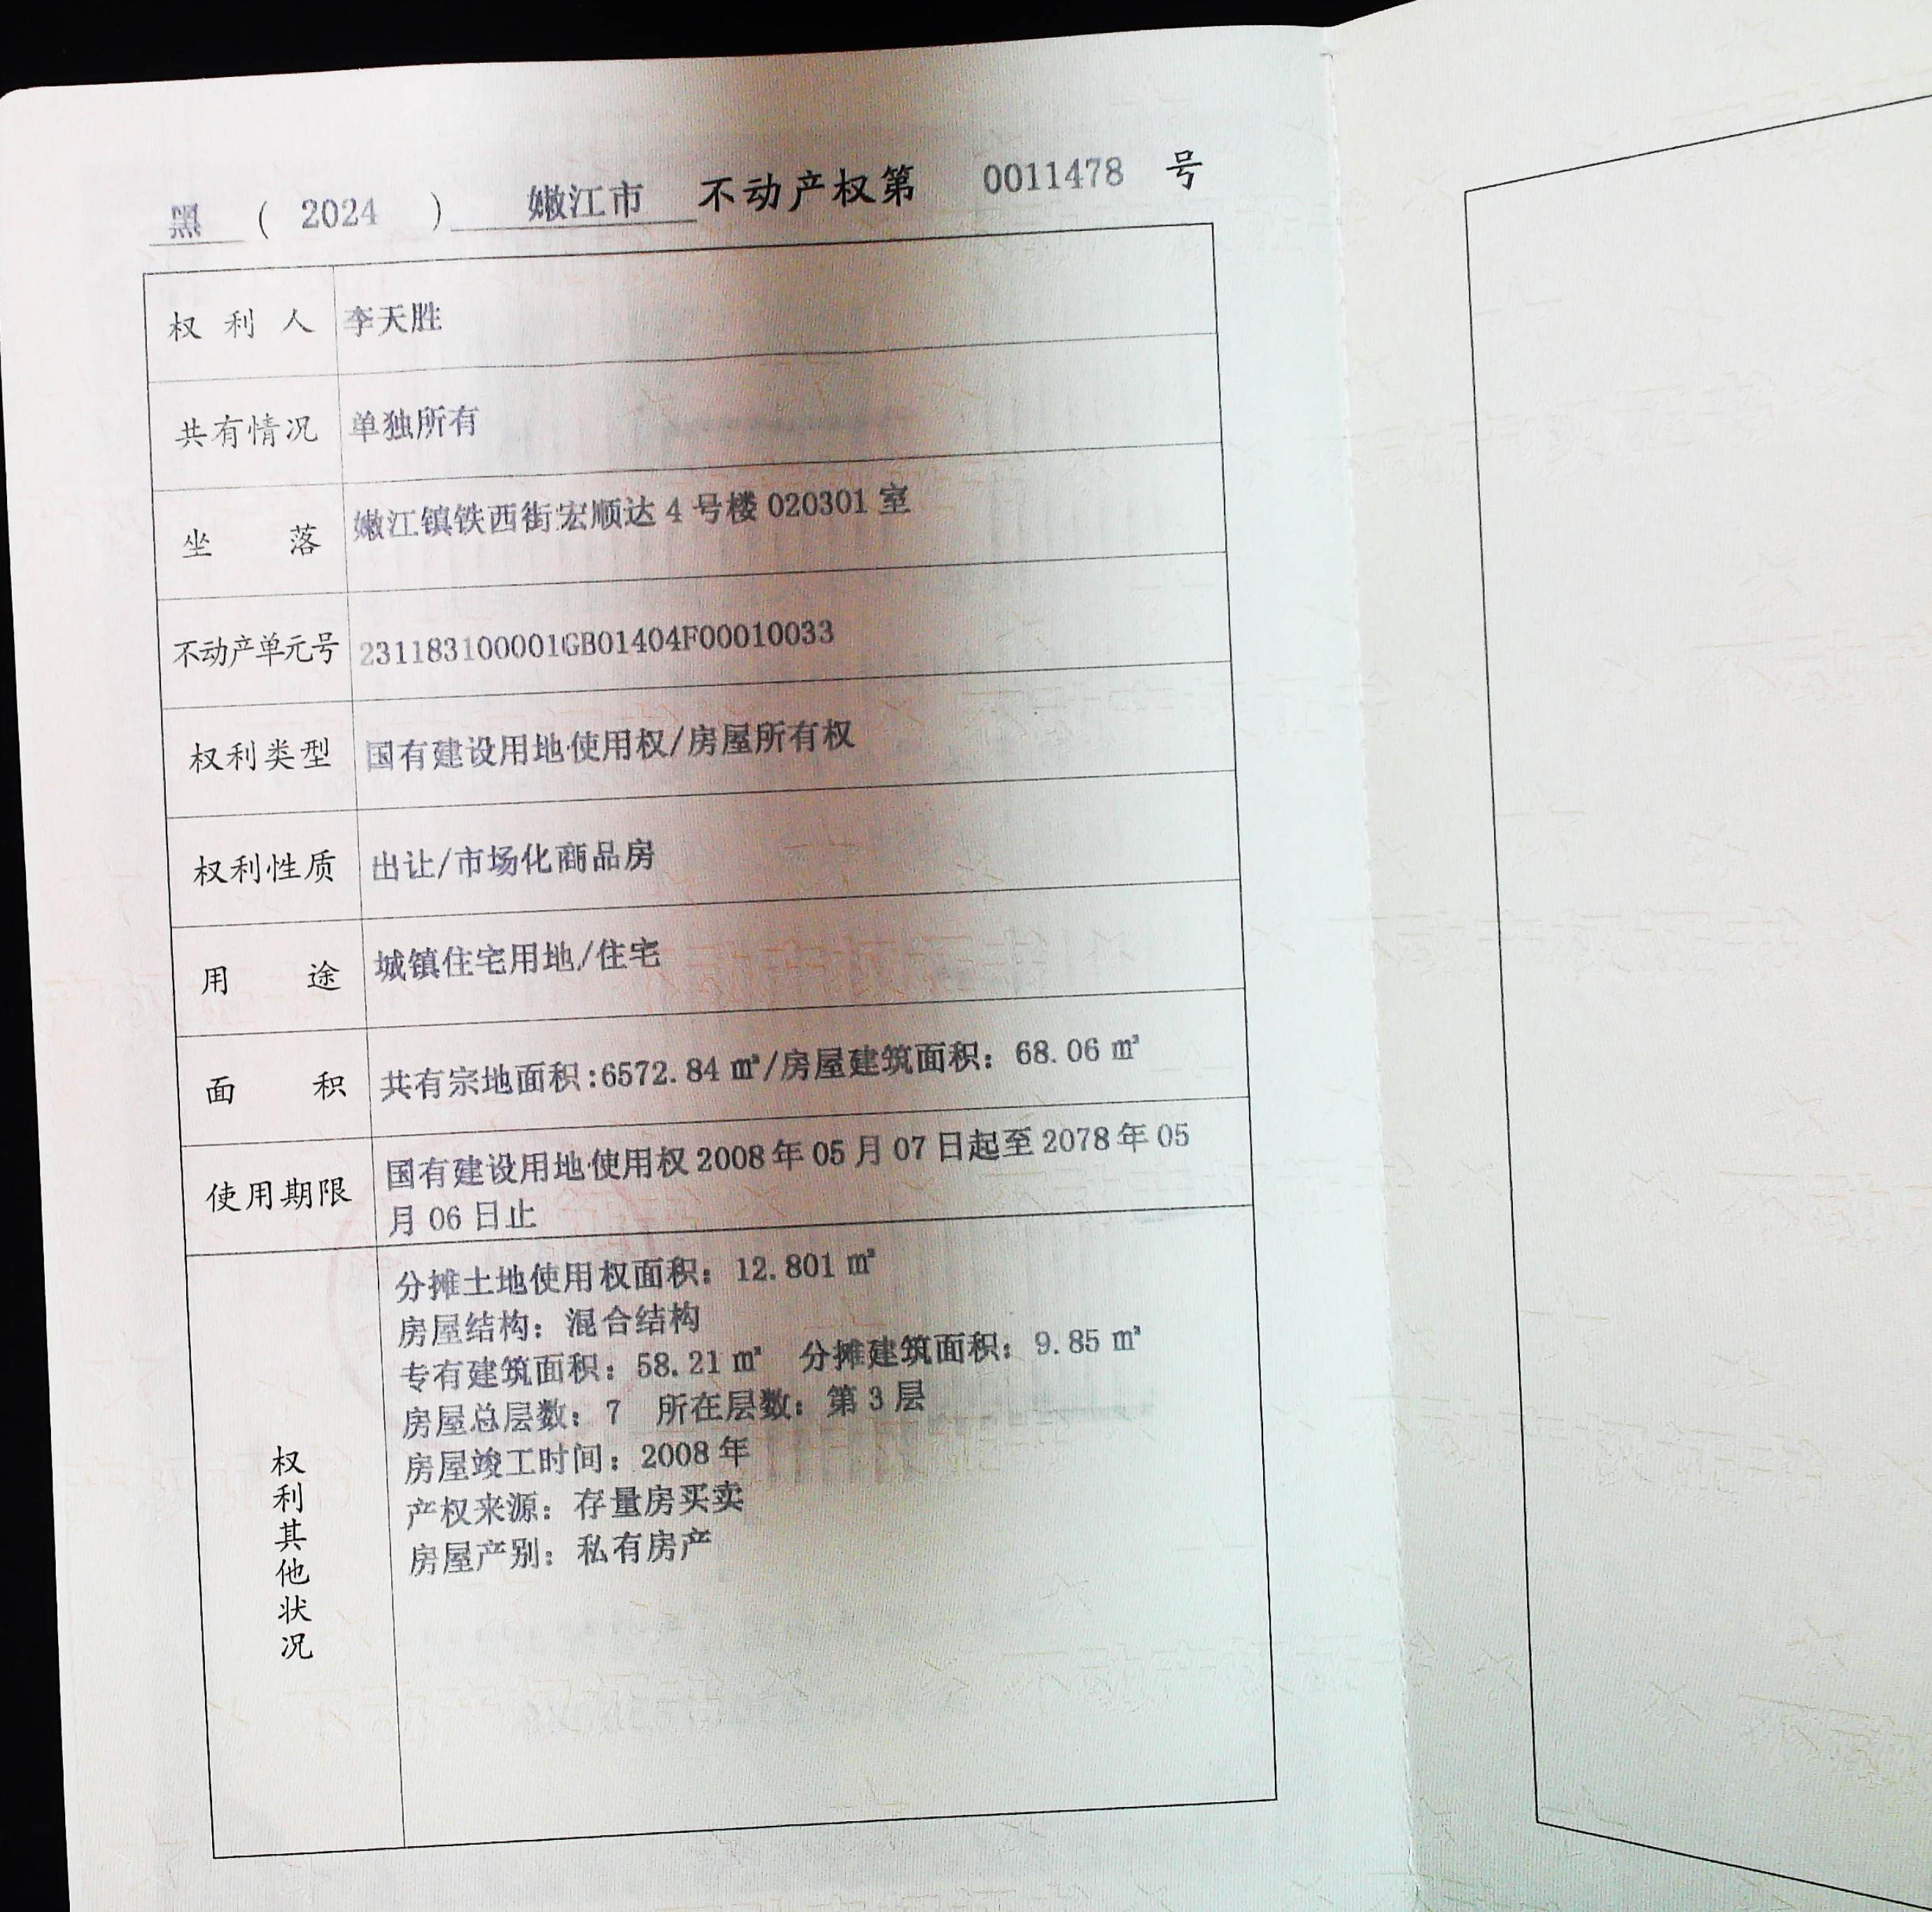 黑 ( 2024 ) 嫩江市 不动产权第 0011478 号
权利人 李天胜
共有情况 单独所有
坐落 嫩江镇铁西街宏顺达4号楼020301室
不动产单元号 231183100001GB01404F00010033
权利类型 国有建设用地使用权/房屋所有权
权利性质 出让/市场化商品房
用途 城镇住宅用地/住宅
面积 共有宗地面积:6572.84㎡/房屋建筑面积：68.06㎡
使用期限 国有建设用地使用权2008年05月07日起至2078年05
月06日止
权利其他状况
分摊土地使用权面积：12.801㎡
房屋结构：混合结构
专有建筑面积：58.21㎡ 分摊建筑面积：9.85㎡
房屋总层数：7 所在层数：第3层
房屋竣工时间：2008年
产权来源：存量房买卖
房屋产别：私有房产